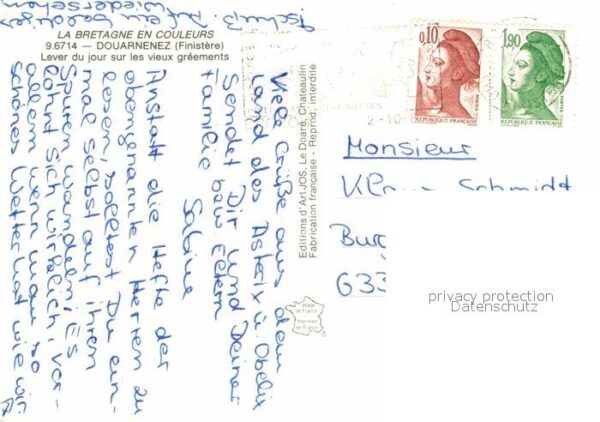 LA BRETAGNE EN COULEURS
9.6714 — DOUARNENEZ (Finistère)
Lever du jour sur les vieux gréements
Viele Grüße aus dem
Land des Asterix u. Obelix
Sendet Dir und Deiner
Familie bzw. Eltern
Sabine
Anstatt die Hefte der
obengnannten Herren zu
lesen, solltest Du ein-
mal selbst auf ihren
Spuren wandeln; Es
lohnt sich wirklich, vor
allem wenn man so
schönes Wetter hat wie wir
Tschuß. Auf ein baldiges
Wiedersehen
Editions d'Art JOS, Le Doaré, Chateaulin
Fabrication française - Reprod. interdite
Image de France
Imprimée en France
0,10
REPUBLIQUE FRANÇAISE
1,90
REPUBLIQUE FRANÇAISE
2-10
Monsieur
Schmidt
Burg
633
privacy protection
Datenschutz